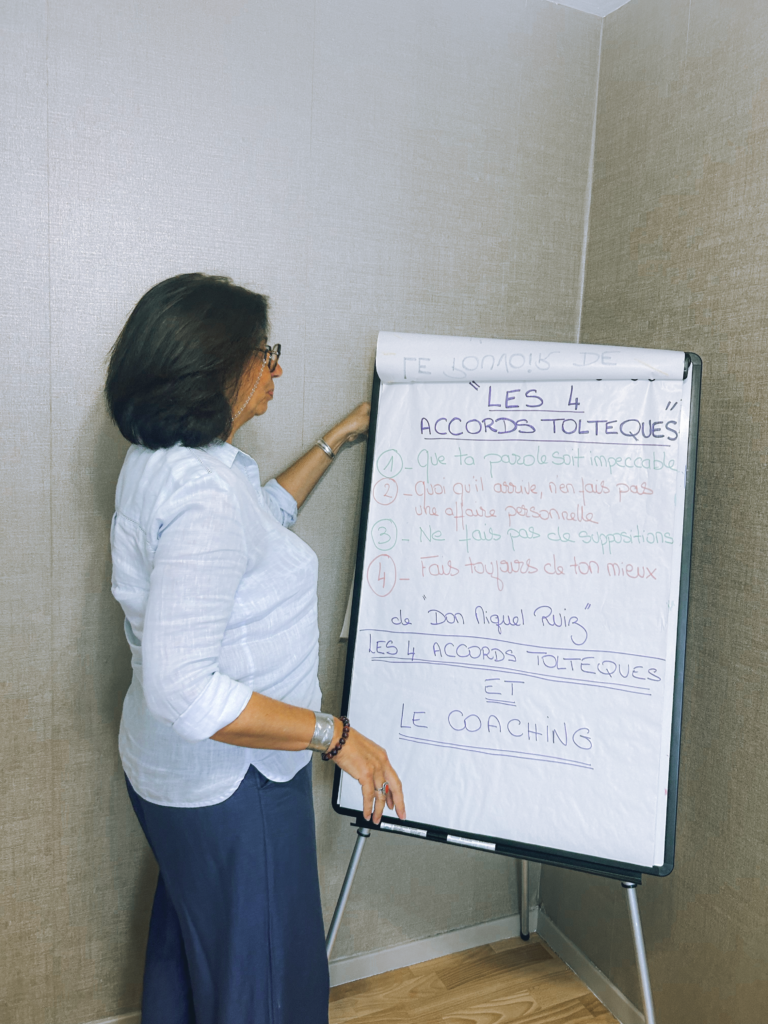 LE POUVOIR DE
"LES 4
ACCORDS TOLTEQUES"
1 - Que ta parole soit impeccable
2 - Quoi qu'il arrive, n'en fais pas
une affaire personnelle
3 - Ne fais pas de suppositions
4 - Fais toujours de ton mieux
de "Don Miguel Ruiz"
LES 4 ACCORDS TOLTEQUES
ET
LE COACHING